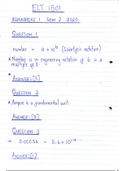 ELT 1501
ASSIGNMENT 1 Sem 2 2020
QUESTION 1
number = a × 10ᵇ (Scientific notation)
* Number is in engineering notation if b = a
multiple of 3
ANSWER: [3]
QUESTION 2
* Ampere is a fundamental unit
ANSWER: [2]
QUESTION 3
0.00056 = 5.6 × 10⁻⁴
ANSWER: